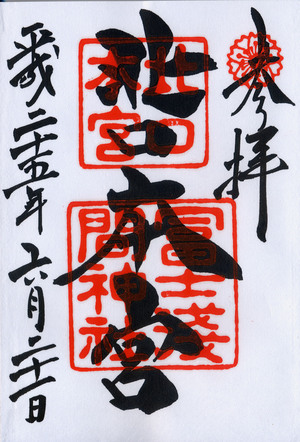 奉拝
北口本宮
北口本宮
冨士淺間神社
平成二十五年六月二十一日